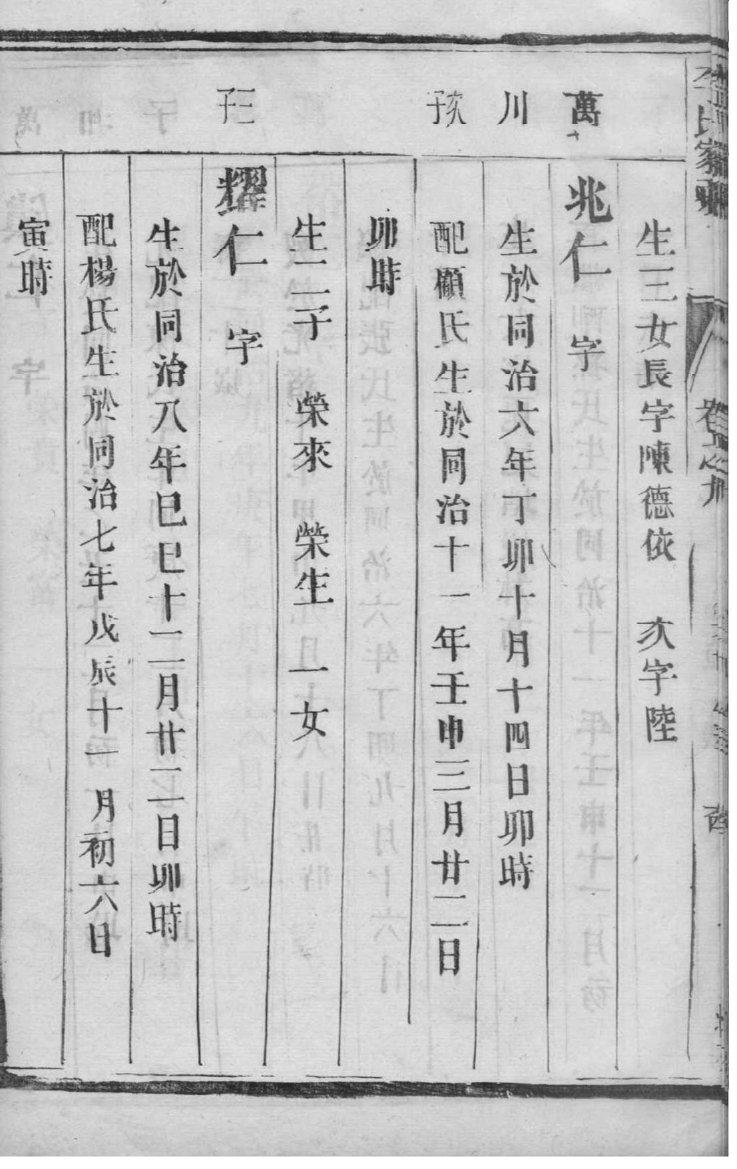 氏家乘
卷
生三女長字陳德依 次字陸
萬川次子
兆仁 字
生於同治六年丁卯十月十四日卯時
配顧氏生於同治十一年壬申三月廿二日
卯時
生二子 榮來 榮生 一女
三子
耀仁 字
生於同治八年己巳十二月廿二日卯時
配楊氏生於同治七年戊辰十一月初六日
寅時